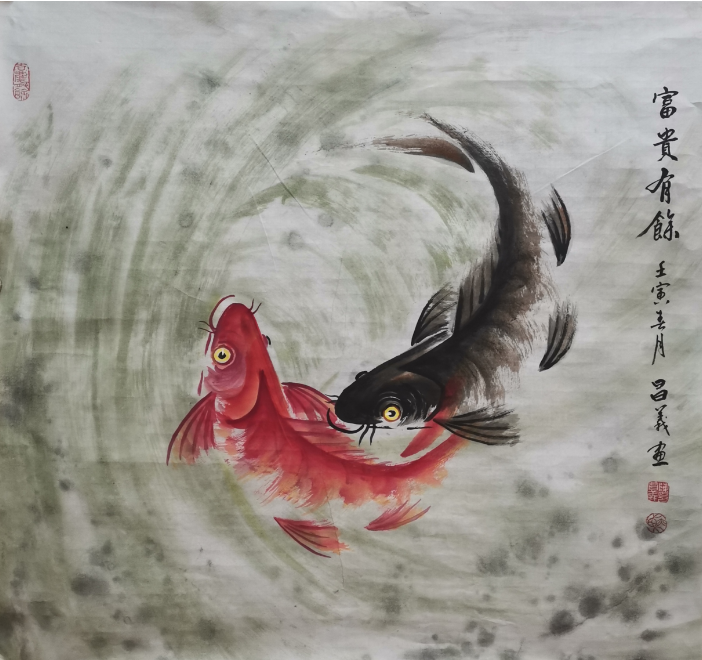 富貴有餘 壬寅春月 昌義畫